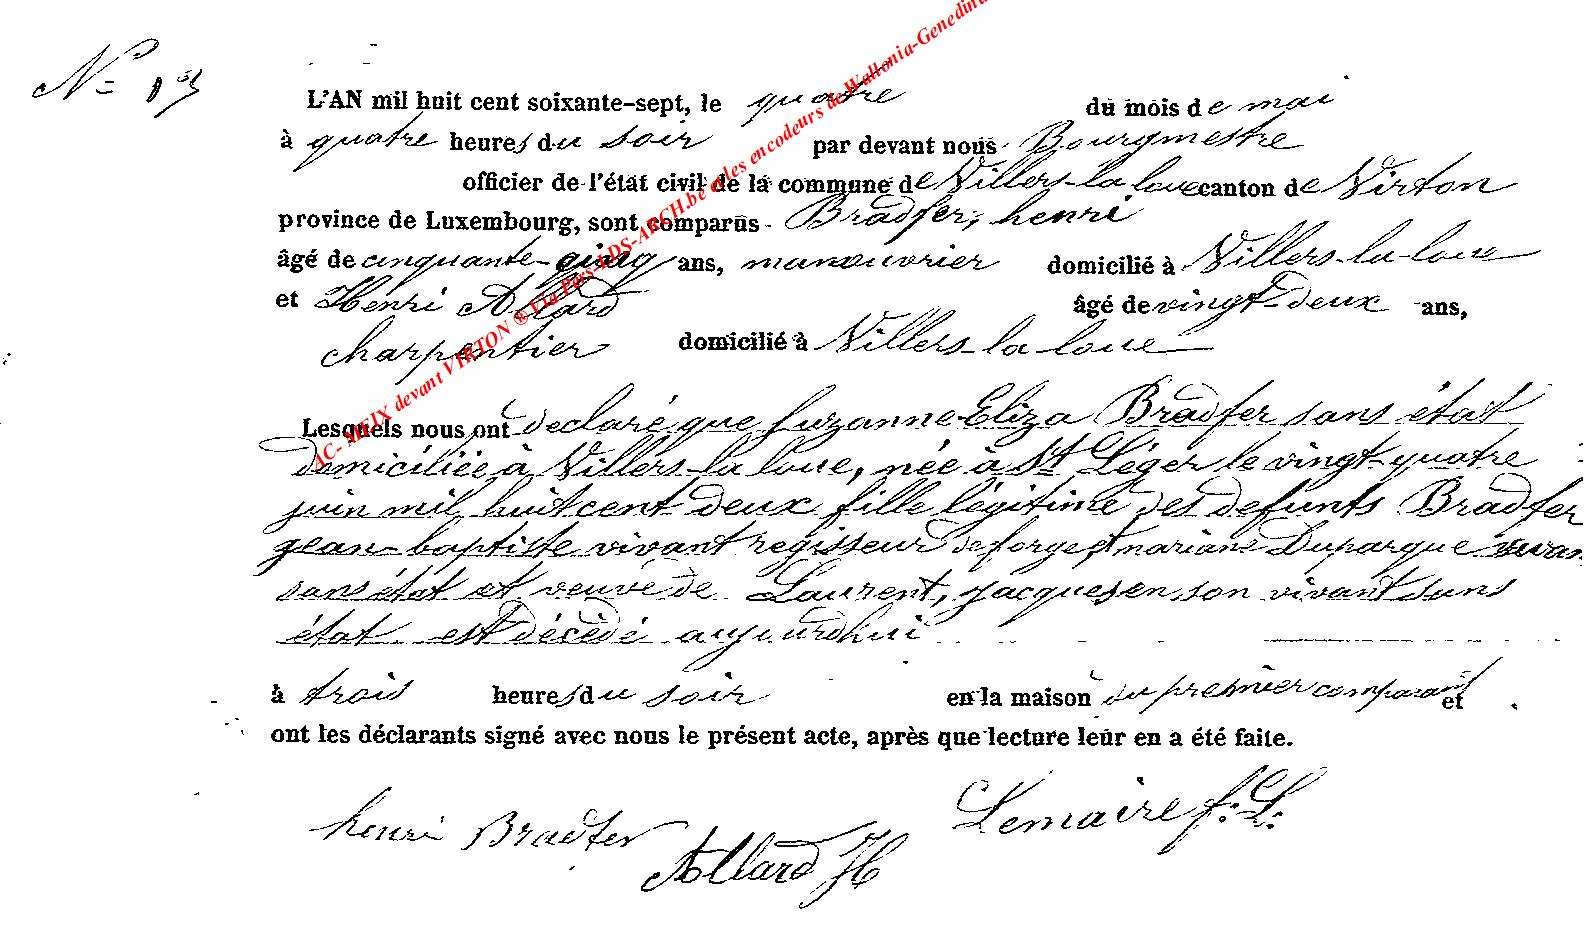 N= 13
L'AN mil huit cent soixante-sept, le quatre du mois de mai
à quatre heures du soir par devant nous Bourgmestre
officier de l'état civil de la commune de Villers-la loue canton de Virton
province de Luxembourg, sont comparus Bradfer, henri
âgé de cinquante-cinq ans, manouvrier domicilié à Villers-la-loue
et Henri Allard âgé de vingt-deux ans,
charpentier domicilié à Villers-la loue
Lesquels nous ont déclaré que Suzanne Eliza Bradfer sans état
domiciliée à Villers-la loue, née à St Léger le vingt-quatre
juin mil huit cent deux fille légitime des defunts Bradfer
jean-baptiste vivant regisseur de forge et mariane Duparque vivan
sans état et veuve de Laurent, jacques en son vivant sans
état est décédé aujourdhui
à trois heures du soir en la maison du premier comparant et
ont les déclarants signé avec nous le présent acte, après que lecture leur en a été faite.
henri Bradfer
Allard H
Lemaire f. L.
AC- MEIX devant VIRTON ® Via Pass-ADS-ARCH.be et les encodeurs de Wallonia-Genedinfo